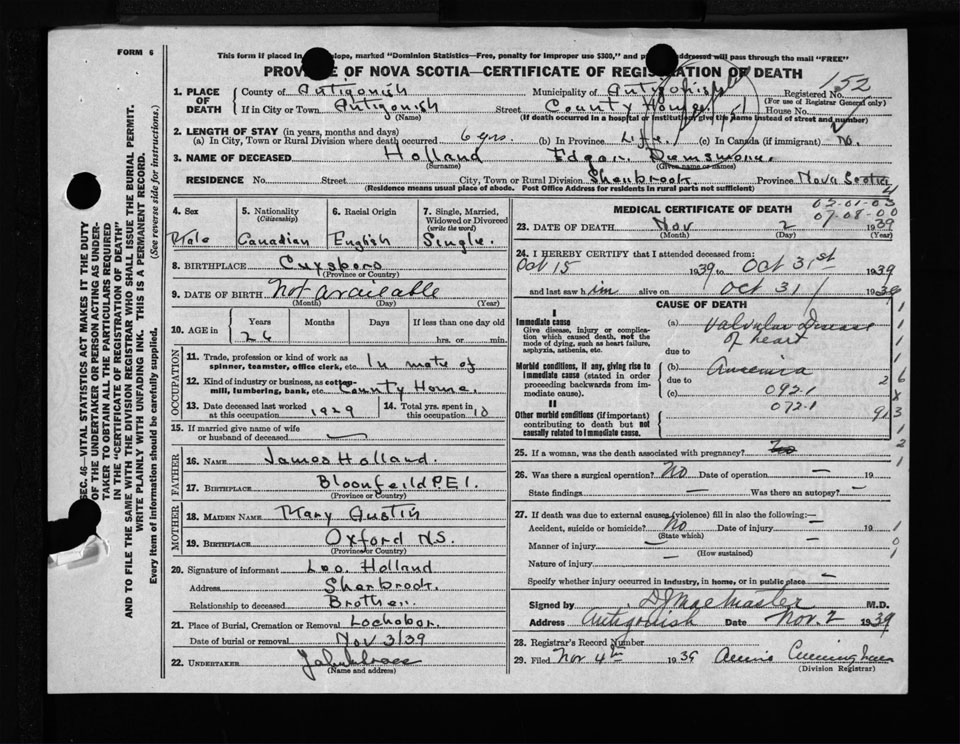 FORM 6
This form if placed in envelope, marked "Dominion Statistics—Free, penalty for improper use $300," and addressed will pass through the mail "FREE"
PROVINCE OF NOVA SCOTIA—CERTIFICATE OF REGISTRATION OF DEATH
152
1. PLACE OF DEATH County of Antigonish Municipality of Antigonish Registered No.
(For use of Registrar General only)
If in City or Town Antigonish Street County Home House No.
(Name) (If death occurred in a hospital or institution, give the name instead of street and number)
2. LENGTH OF STAY (in years, months and days)
(a) In City, Town or Rural Division where death occurred 6 yrs. (b) In Province Life. (c) In Canada (if immigrant) No.
3. NAME OF DECEASED Holland Edgar
(Surname) (Given name or names)
RESIDENCE No. Street City, Town or Rural Division Sherbrook. Province Nova Scotia
(Residence means usual place of abode. Post Office Address for residents in rural parts not sufficient)
SEC. 46—VITAL STATISTICS ACT MAKES IT THE DUTY
OF THE UNDERTAKER OR PERSON ACTING AS UNDERTAKER TO OBTAIN ALL THE PARTICULARS REQUIRED
IN THE "CERTIFICATE OF REGISTRATION OF DEATH"
AND TO FILE THE SAME WITH THE DIVISION REGISTRAR WHO SHALL ISSUE THE BURIAL PERMIT.
WRITE PLAINLY WITH UNFADING INK. THIS IS A PERMANENT RECORD.
Every item of information should be carefully supplied. (See reverse side for instructions.)
4. Sex 5. Nationality 6. Racial Origin 7. Single, Married,
(Citizenship) Widowed or Divorced
(write the word)
Male Canadian English Single.
8. BIRTHPLACE
(Province or Country)
9. DATE OF BIRTH Not available
(Month) (Day) (Year)
10. AGE in Years Months Days If less than one day old
26 hrs. or min.
OCCUPATION
11. Trade, profession or kind of work as
spinner, teamster, office clerk, etc. In mate of
12. Kind of industry or business, as cotton-
mill, lumbering, bank, etc. County Home.
13. Date deceased last worked 14. Total yrs. spent in
at this occupation 1929 this occupation 10
15. If married give name of wife
or husband of deceased —
FATHER
16. NAME James Holland.
17. BIRTHPLACE Bloomfeild P.E.I.
(Province or Country)
MOTHER
18. MAIDEN NAME Mary Austin
19. BIRTHPLACE Oxford N.S.
(Province or Country)
20. Signature of informant Leo. Holland
Address Sherbrook.
Relationship to deceased Brother.
21. Place of Burial, Cremation or Removal Lochabor.
Date of burial or removal Nov 3/39
22. UNDERTAKER
(Name and address)
MEDICAL CERTIFICATE OF DEATH
02-01-03
07-08-00
23. DATE OF DEATH Nov 2 1939
(Month) (Day) (Year)
24. I HEREBY CERTIFY that I attended deceased from:
Oct 15 1939 to Oct 31st 1939
and last saw him alive on Oct 31 1939
CAUSE OF DEATH
I
Immediate cause
Give disease, injury or complication which caused death, not the mode of dying, such as heart failure, asphyxia, asthenia, etc.
(a) Valvular Disease
of heart
due to
Morbid conditions, if any, giving rise to immediate cause (stated in order proceeding backwards from immediate cause).
(b) Anaemia
due to
(c) 092.1
072.1
II
Other morbid conditions (if important) contributing to death but not causally related to immediate cause.
25. If a woman, was the death associated with pregnancy?
26. Was there a surgical operation? No Date of operation — 19
State findings — Was there an autopsy? —
27. If death was due to external causes (violence) fill in also the following:—
Accident, suicide or homicide? No Date of injury — 19
(State which)
Manner of injury —
(How sustained)
Nature of injury —
Specify whether injury occurred in industry, in home, or in public place —
Signed by D J MacMaster M.D.
Address Antigonish Date Nov. 2 1939
28. Registrar's Record Number
29. Filed Nov 4th 1939 Annie Cunningham
(Division Registrar)